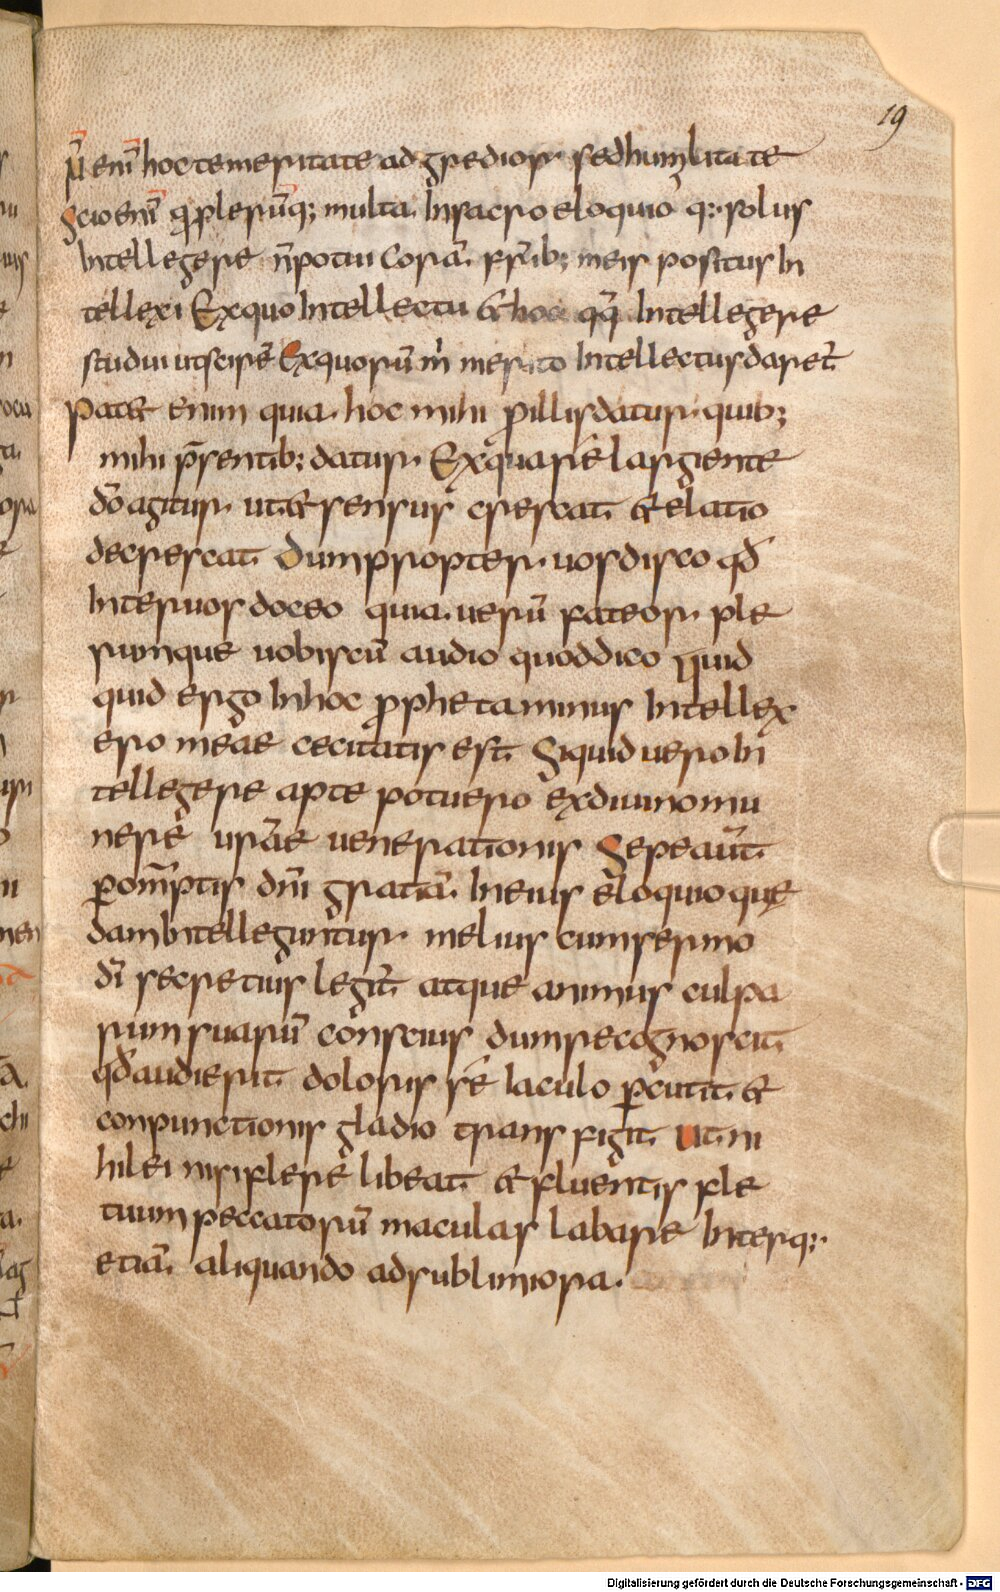 19
N̄ enī hoc temeritate adgredior sed humilitate
Scio enī q̄ plerūq; multa In sacro eloquio q; solus
Intellegere n̄ potui Corā fr̄ib; meis positus In
tellexi Ex quo Intellectu & hoc qq̄ Intellegere
studui ut scirē Ex quorū m̄ merito Intellectus daret̄
Pat& enim quia hoc mihi p illis datur quib;
mihi p̄sentib; datur Ex qua re largiente
dō agitur ut & sensus crescat & elatio
decrescat Dum propter uos disco qd̄
Inter uos doceo quia uerū fateor ple
rumque uobiscū audio quod dico quid
quid ergo In hoc ppheta minus Intellex
ero meae cecitatis est Siquid uero In
tellegere apte potuero ex diuino mu
nere ur̄ae uenerationis Sepe aūt
p om̄ptis dn̄i gratiā In eius eloquio que
dam Intelleguntur melius cum sermo
dī secretius legit̄ atque animus culpa
rum suarū conscius dum recognoscit
qd̄ audierit doloris se Iaculo pcutit &
conpunctionis gladio transfigit Ut ni
hil ei nisi flere libeat & fluentis fle
tuum peccatorū maculas labare Interq;
etiā aliquando ad sublimiora
Digitalisierung gefördert durch die Deutsche Forschungsgemeinschaft - DFG